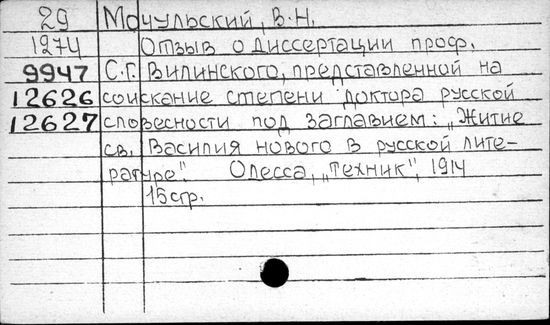 29 Мочульский, В.Н.
1274 Отзыв о диссертации проф.
9947 С.Г. Вилинского, представленной на
12626 соискание степени доктора русской
12627 словесности под заглавием: „Житие
св. Василия нового в русской лите-
ратуре". Одесса, „Техник", 1914
15стр.